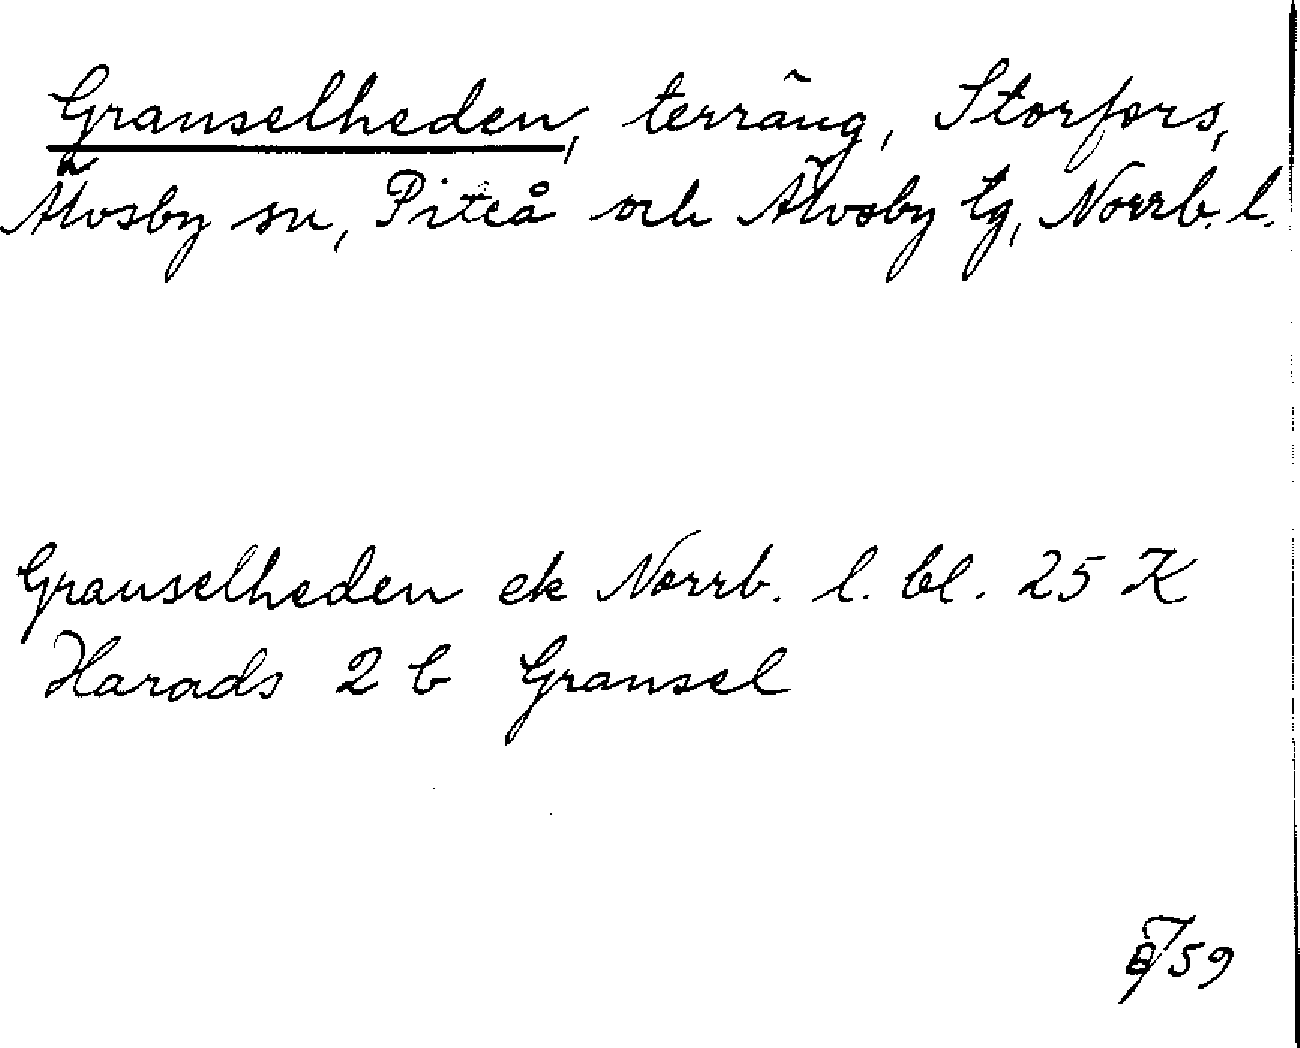 Granselheden, terräng, Storfors,
Älvsby sn, Piteå och Älvsby tg, Norrb. l.
Granselheden ek Norrb. l. bl. 25 K
Harads 2 b Gransel
59